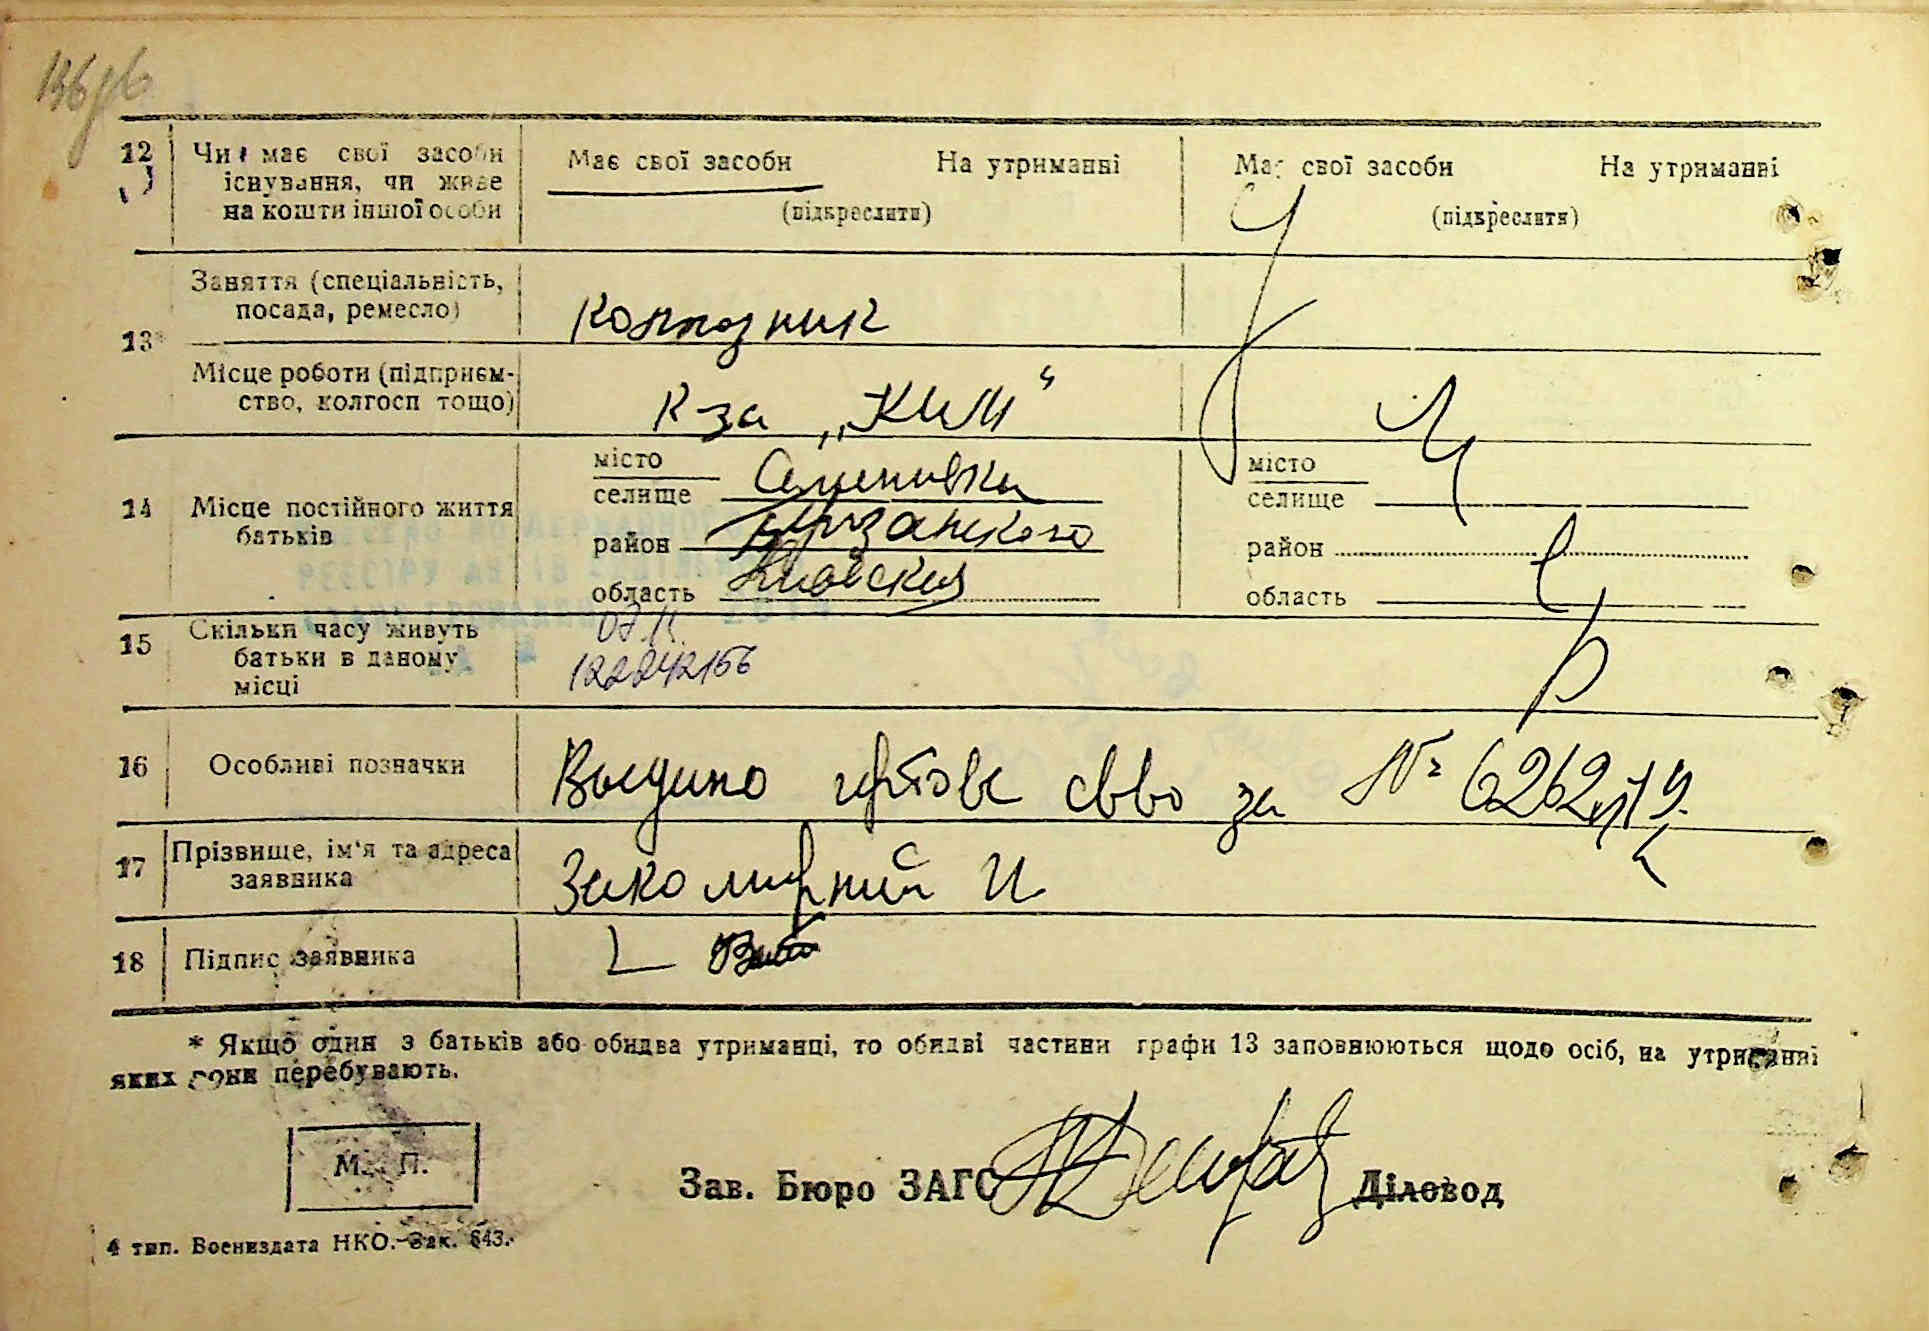 12 Чи має свої засоби існування, чи живе на кошти іншої особи
Має свої засоби На утриманні
(підкреслити)
Має свої засоби На утриманні
(підкреслити)
13* Заняття (спеціальність, посада, ремесло)
Колгозник
Місце роботи (підприєм-
ство, колгосп тощо)
К-за „КИМ“
14 Місце постійного життя батьків
місто
селище Семенивка
район
область Киовская
місто
селище
район
область
15 Скільки часу живуть батьки в даному місці
16 Особливі позначки
Выдано свво за № 6262
17 Прізвище, ім'я та адреса заявника
Закомирний И
18 Підпис заявника
* Якщо один з батьків або обидва утриманці, то обидві частини графи 13 заповнюються щодо осіб, на утриманні
яких вони перебувають.
М. П.
Зав. Бюро ЗАГС Діловод
4 тип. Воениздата НКО. Зак. 843.